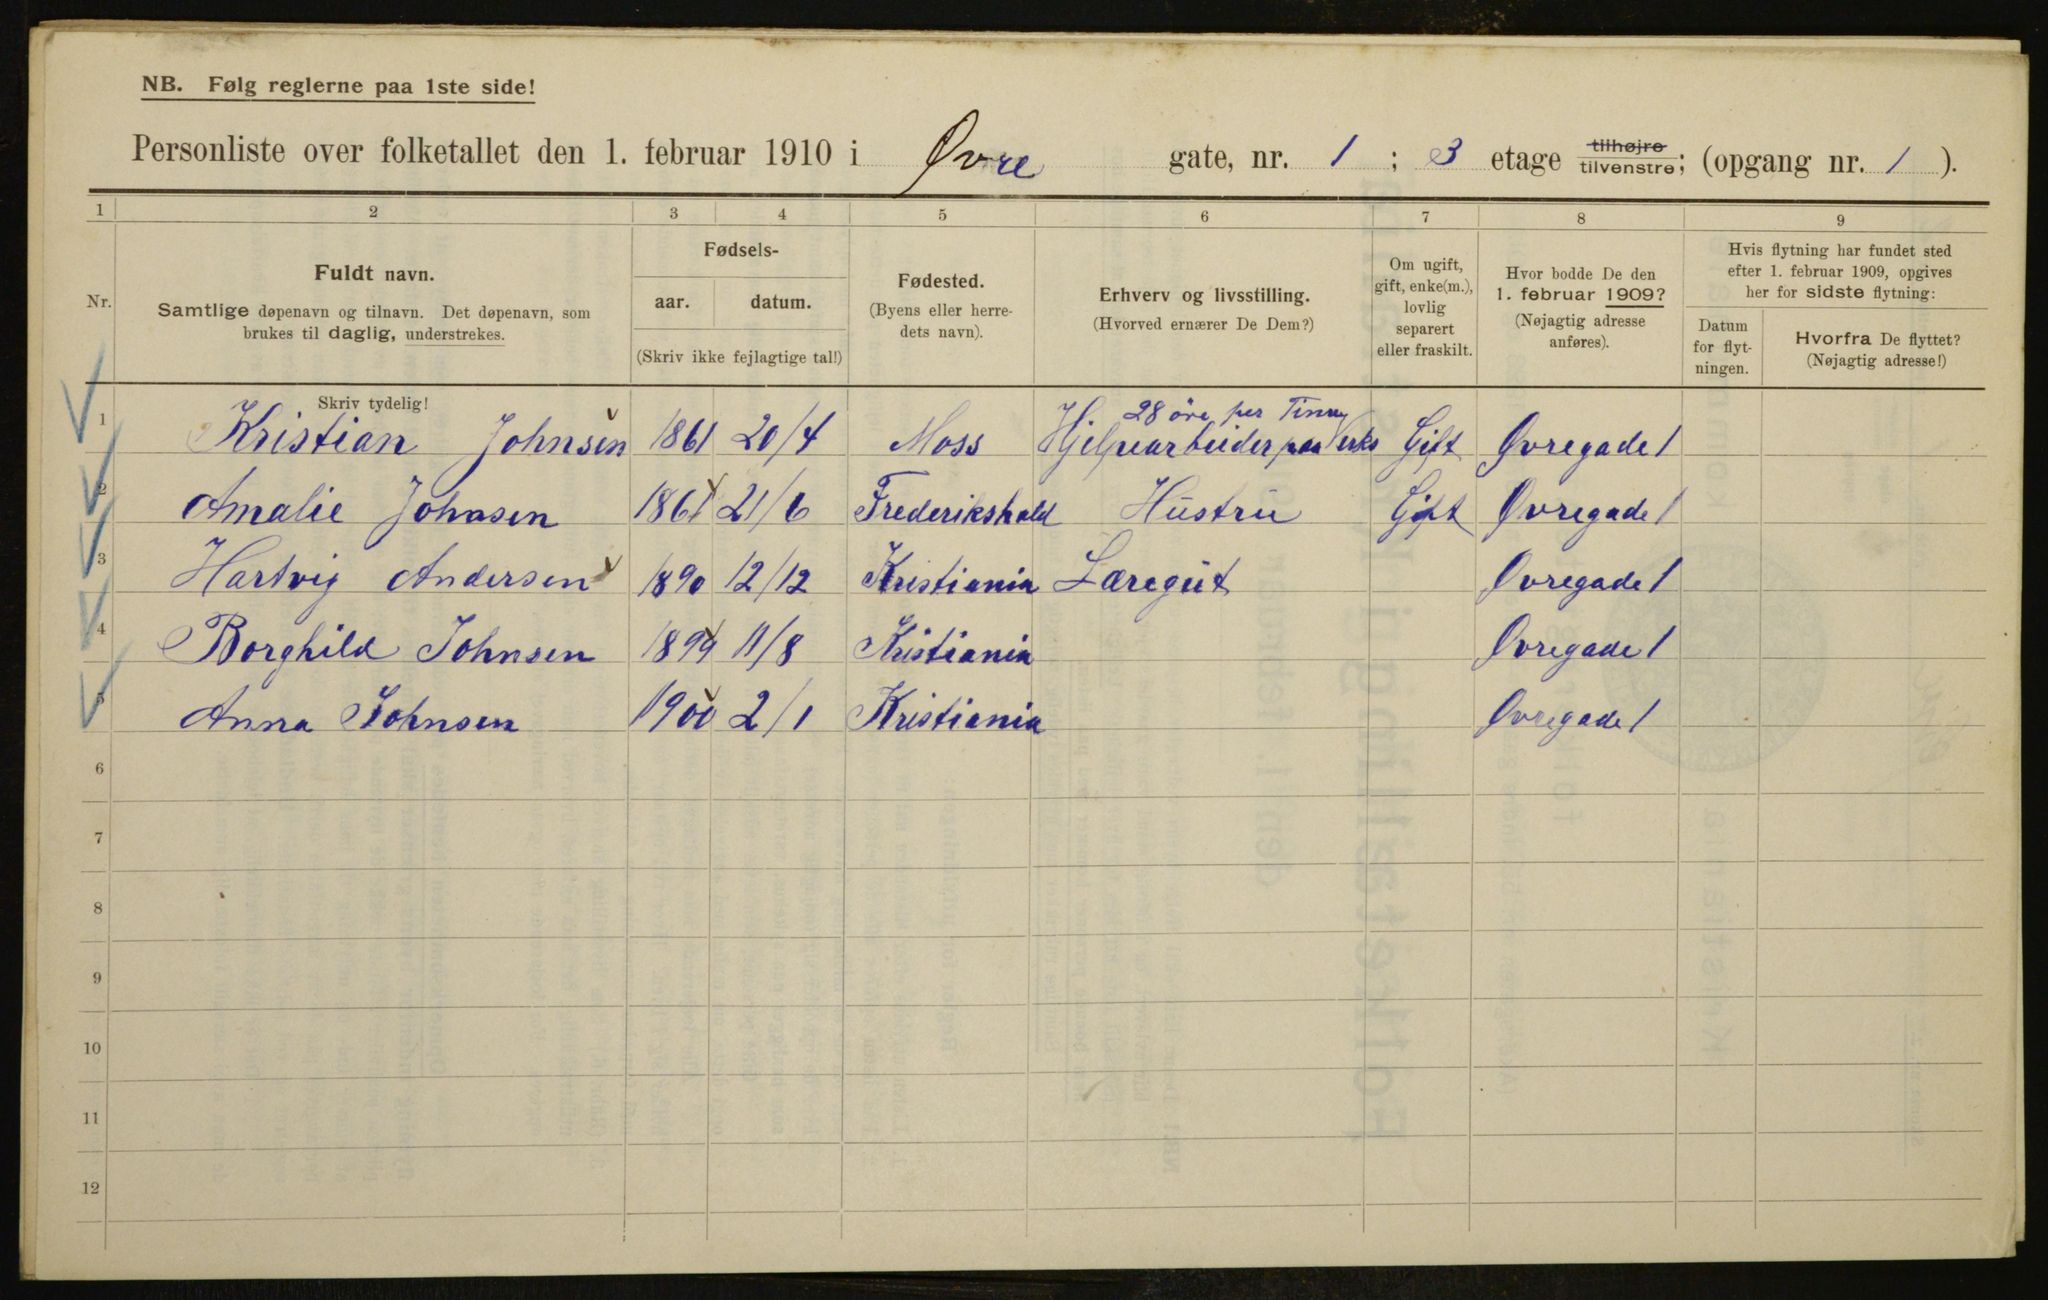 NB. Følg reglerne paa 1ste side!
Personliste over folketallet den 1. februar 1910 i Øvre gate, nr. 1 ; 3 etage tilhøjre tilvenstre; (opgang nr. 1 ).
1 2 3 4 5 6 7 8 9
Nr.
Fuldt navn.
Samtlige døpenavn og tilnavn. Det døpenavn, som
brukes til daglig, understrekes.
Fødsels-
aar. datum.
(Skriv ikke fejlagtige tal!)
Fødested.
(Byens eller herre-
dets navn).
Erhverv og livsstilling.
(Hvorved ernærer De Dem?)
Om ugift,
gift, enke(m.),
lovlig
separert
eller fraskilt.
Hvor bodde De den
1. februar 1909?
(Nøjagtig adresse
anføres).
Hvis flytning har fundet sted
efter 1. februar 1909, opgives
her for sidste flytning:
Datum
for flyt-
ningen.
Hvorfra De flyttet?
(Nøjagtig adresse!)
Skriv tydelig!
28 öre per Time
1 Kristian Johnsen 1861 20/4 Moss Hjelpearbeider paa Verks Gift Øvregade 1
2 Amalie Johnsen 1861 21/6 Frederikshald Hustru Gift Øvregade 1
3 Hartvig Andersen 1890 12/12 Kristiania Læregut Øvregade 1
4 Borghild Johnsen 1894 11/8 Kristiania Øvregade 1
5 Anna Johnsen 1900 2/1 Kristiania Øvregade 1
6
7
8
9
10
11
12